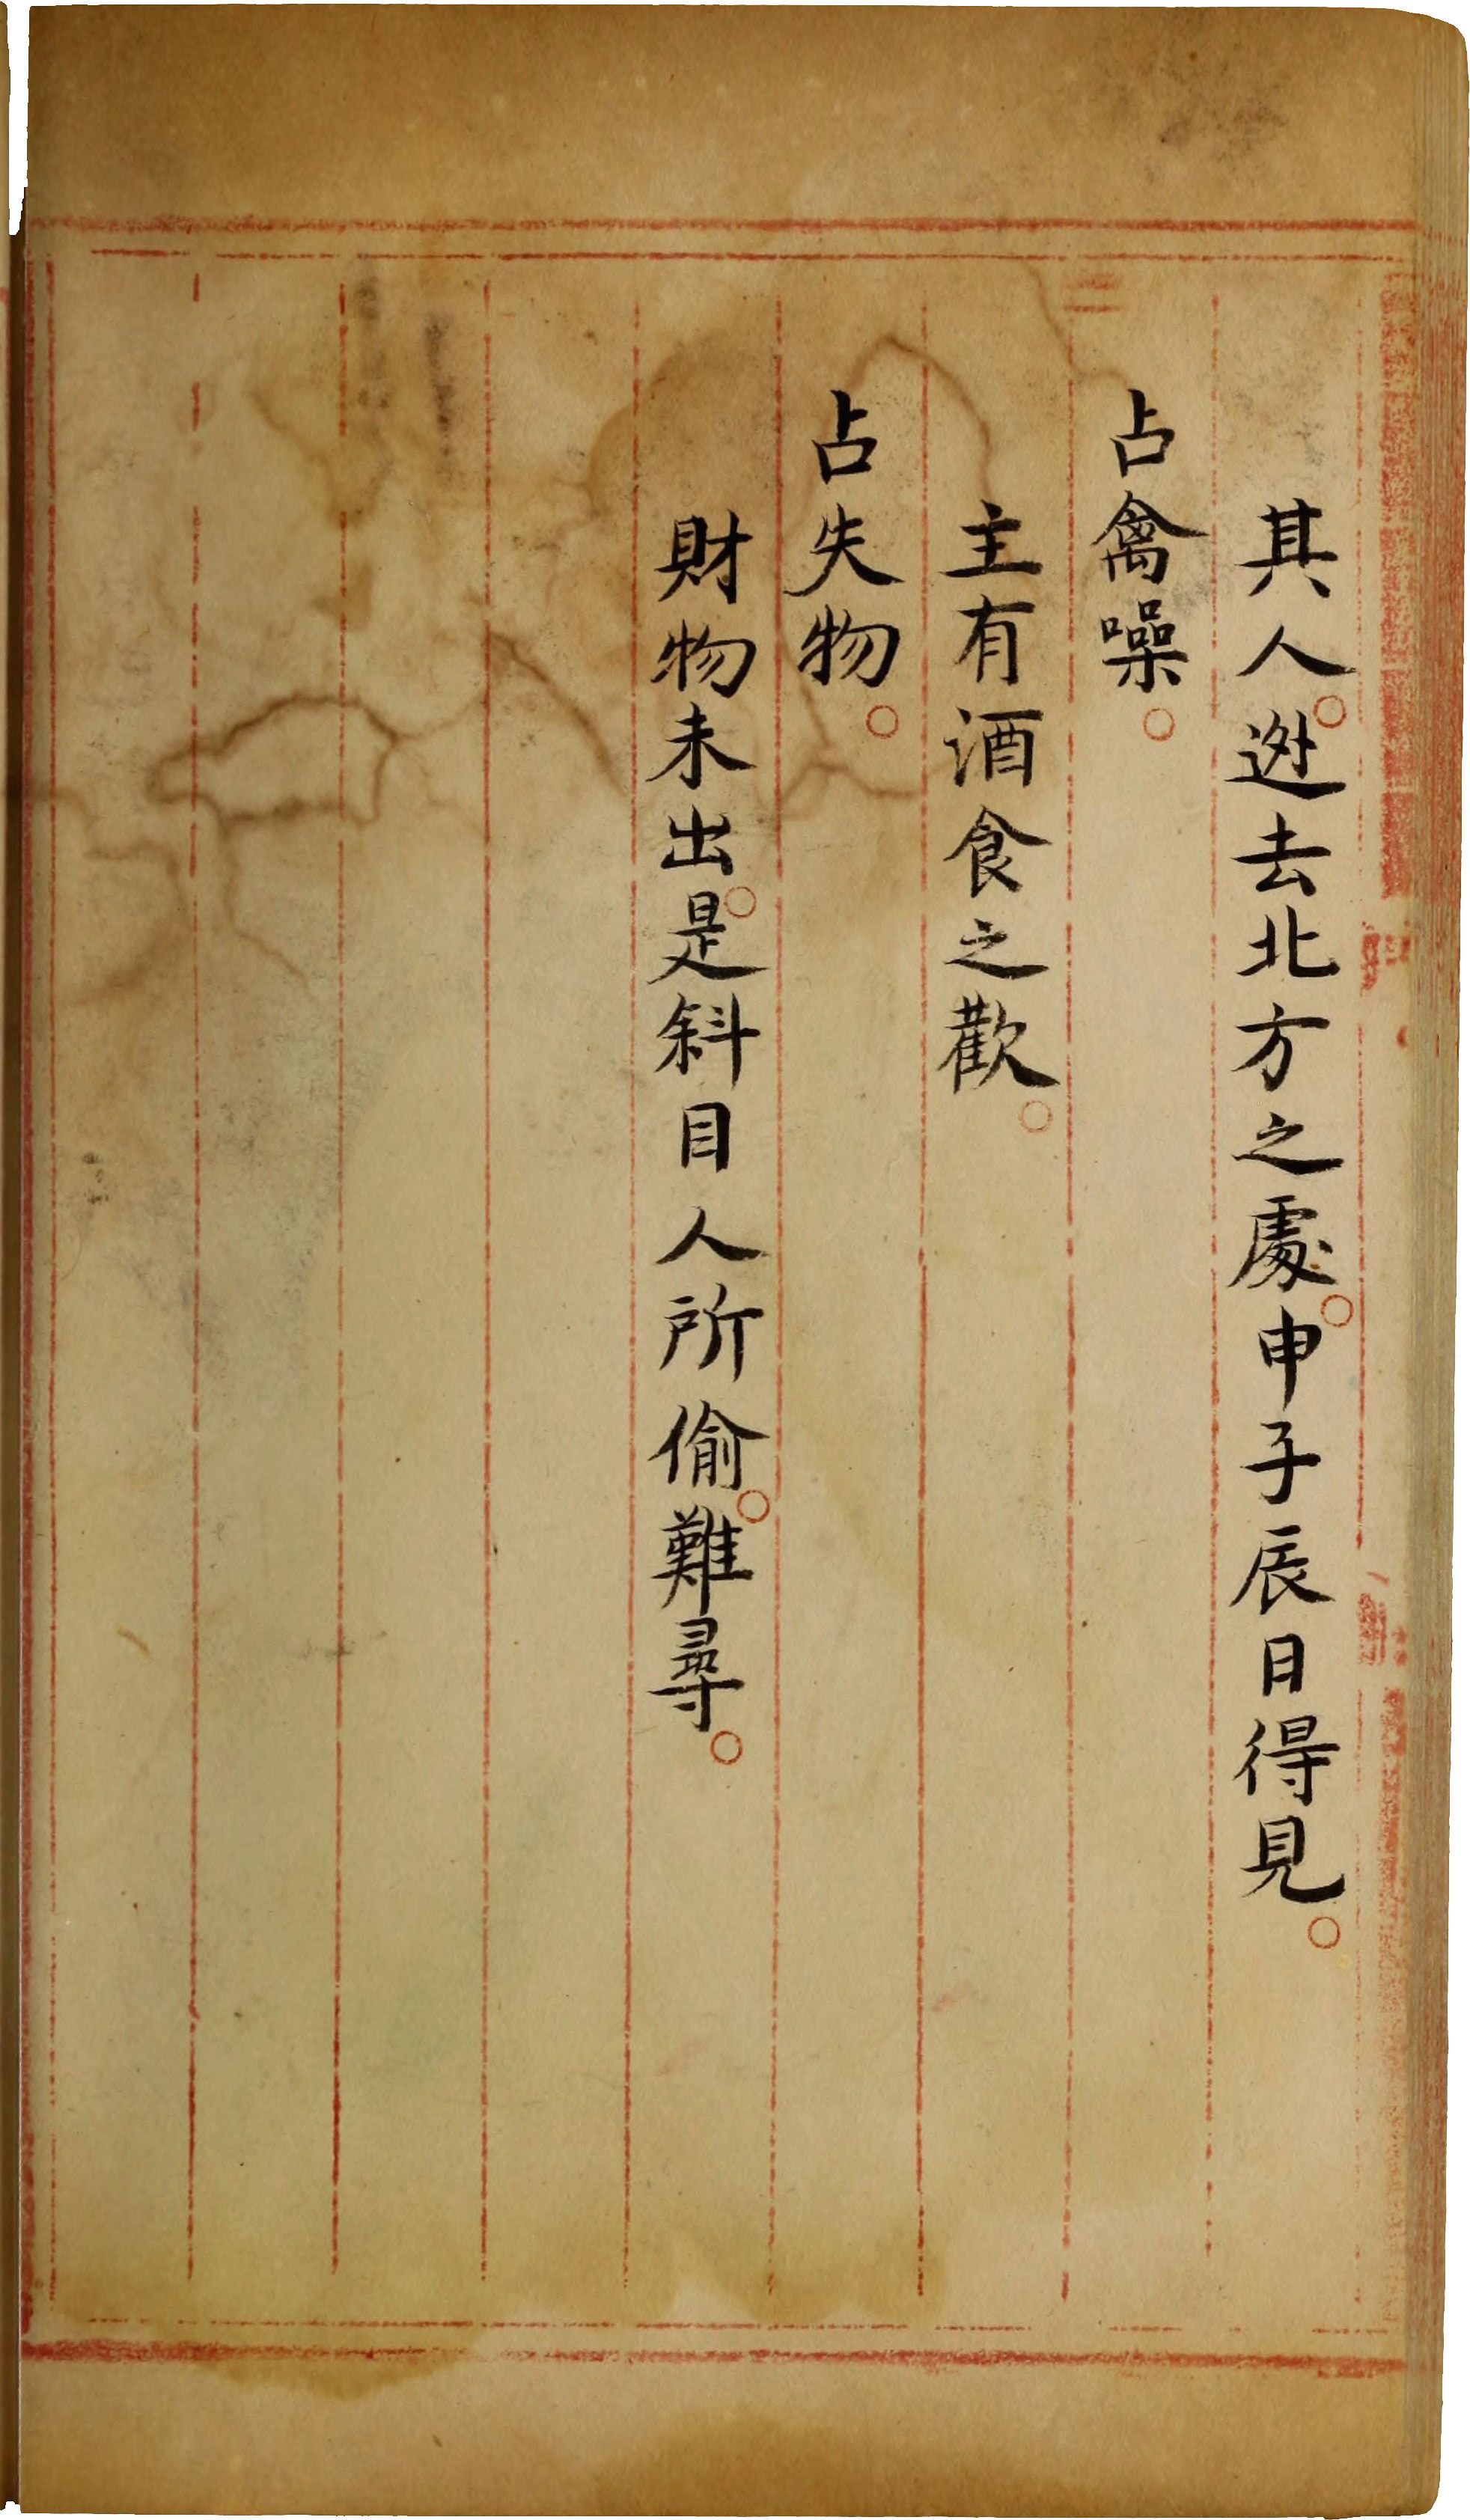 其人。逃去北方之處。申子辰日得見。
占禽噪。
主有酒食之歡。
占失物。
財物未出。是斜目人所偷。難尋。